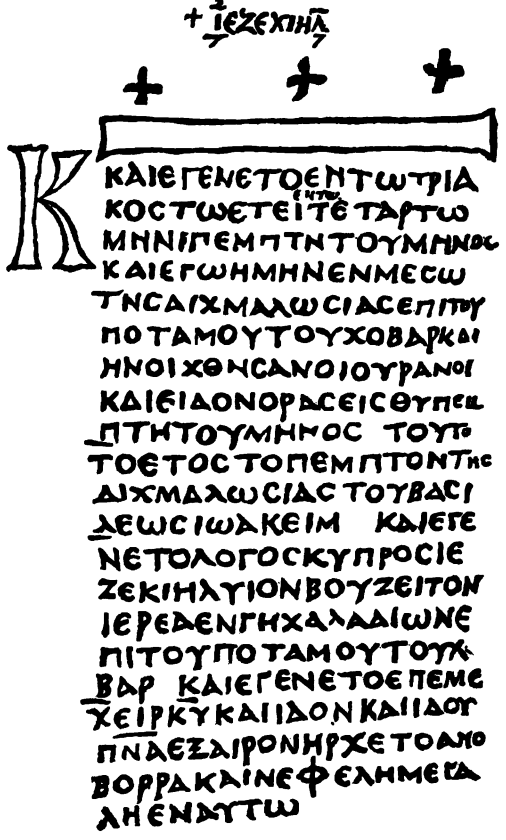 + ΙΕΖΕΚΙΗΛ
+ + +
Κ
ΚΑΙΕΓΕΝΕΤΟΕΝΤΩΤΡΙΑ
ΚΟCΤΩΕΤΕΙ ΕΝΤΩ ΤΕΤΑΡΤΩ
ΜΗΝΙΠΕΜΠΤΗΤΟΥΜΗΝΟC
ΚΑΙΕΓΩΗΜΗΝΕΝΜΕCΩ
ΤΗCΑΙΧΜΑΛΩCΙΑCΕΠΙΤΟΥ
ΠΟΤΑΜΟΥΤΟΥΧΟΒΑΡΚΑΙ
ΗΝΟΙΧΘΗCΑΝΟΙΟΥΡΑΝΟΙ
ΚΑΙΕΙΔΟΝΟΡΑCΕΙCΘΥΠΕΜ
ΠΤΗΤΟΥΜΗΝΟC ΤΟΥΤΟ
ΤΟΕΤΟCΤΟΠΕΜΠΤΟΝΤΗC
ΑΙΧΜΑΛΩCΙΑCΤΟΥΒΑCΙ
ΛΕΩCΙΩΑΚΕΙΜ ΚΑΙΕΓΕ
ΝΕΤΟΛΟΓΟCΚΥΠΡΟCΙΕ
ΖΕΚΙΗΛΥΙΟΝΒΟΥΖΕΙΤΟΝ
ΙΕΡΕΑΕΝΓΗΧΑΛΔΑΙΩΝΕ
ΠΙΤΟΥΠΟΤΑΜΟΥΤΟΥΧ
ΒΑΡ ΚΑΙΕΓΕΝΕΤΟΕΠΕΜΕ
ΧΕΙΡΚΥΚΑΙΙΔΟΝΚΑΙΙΔΟΥ
ΠΝΑΕΞΑΙΡΟΝΗΡΧΕΤΟΑΠΟ
ΒΟΡΡΑΚΑΙΝΕΦΕΛΗΜΕΓΑ
ΛΗΕΝΑΥΤΩ